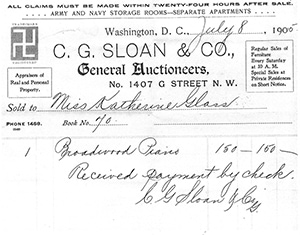 ALL CLAIMS MUST BE MADE WITHIN TWENTY-FOUR HOURS AFTER SALE.
ARMY AND NAVY STORAGE ROOMS—SEPARATE APARTMENTS
Washington, D. C., July 8, 1900
C. G. SLOAN & CO.,
General Auctioneers,
No. 1407 G STREET N. W.
Appraisers of
Real and Personal
Property.
Regular Sales of
Furniture
Every Saturday
at 10 A. M.
Special Sales at
Private Residences
on Short Notice.
Sold to Miss Katherine Glass
PHONE 1468.
Book No. 70.
1 Broadwood Piano 150 — 150 —
Received payment by check
C G Sloan & Co